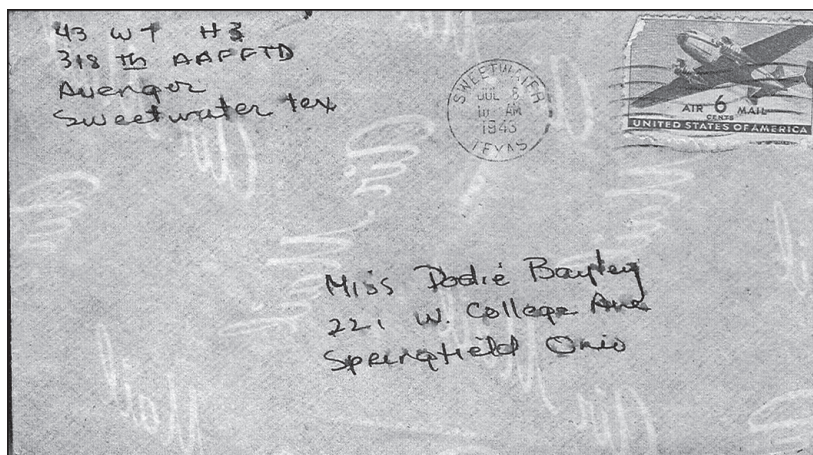 43 WT H3
318 th AAFFTD
Avenger
Sweetwater tex
SWEETWATER
JUL 8
10 AM
1943
TEXAS
AIR 6 MAIL
CENTS
UNITED STATES OF AMERICA
Miss Dodie
221 W. College Ave
Springfield Ohio
Air Mail